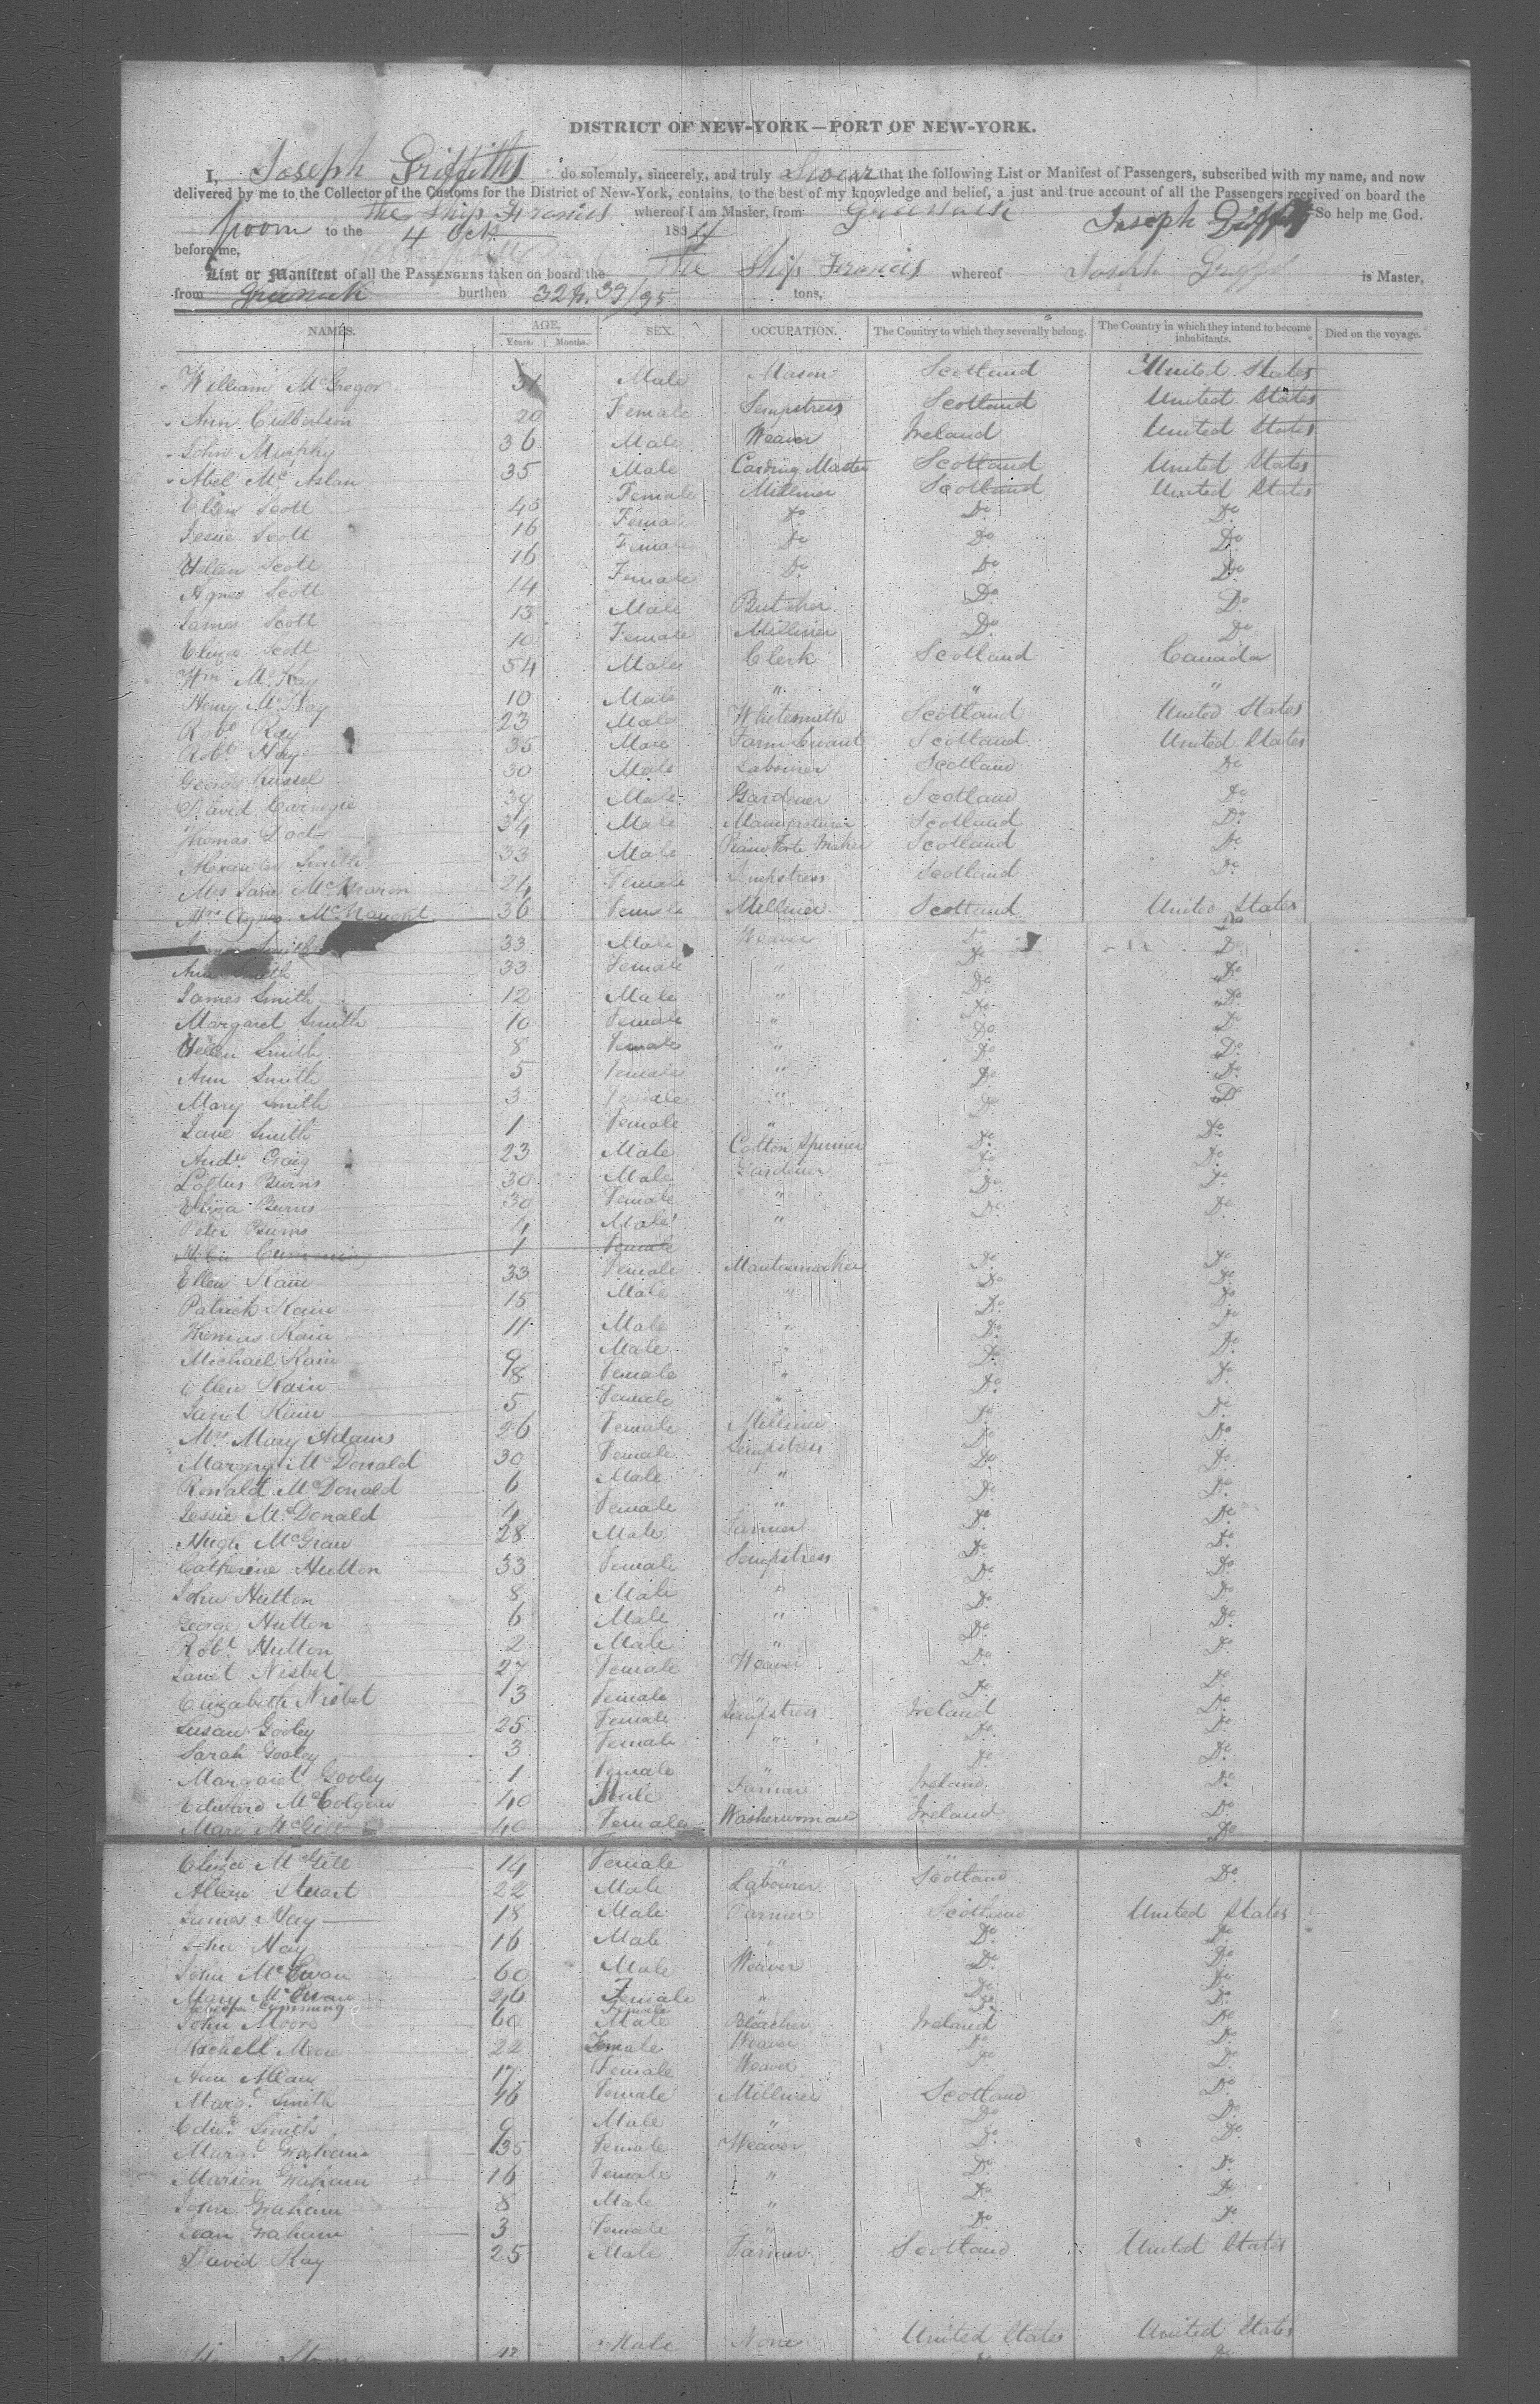 DISTRICT OF NEW-YORK—PORT OF NEW-YORK.
I, Joseph Griffiths do solemnly, sincerely, and truly Swear that the following List or Manifest of Passengers, subscribed with my name, and now
delivered by me to the Collector of the Customs for the District of New-York, contains, to the best of my knowledge and belief, a just and true account of all the Passengers received on board the
the Ship Francis whereof I am Master, from Greenock
Sworn to the 4 Octr 1834 Joseph Griffiths So help me God.
before me,
List or Manifest of all the PASSENGERS taken on board the The Ship Francis whereof Joseph Griffiths is Master,
from Greenock burthen tons,
NAMES. AGE. SEX. OCCUPATION. The Country to which they severally belong. The Country in which they intend to become inhabitants. Died on the voyage.
Years. Months.
William McGregor 31 Male Mason Scotland United States
Ann Culbertson 20 Female Sempstress Scotland United States
John Murphy 36 Male Weaver Ireland United States
Abel McAslan 35 Male Carding Master Scotland United States
Scott 45 Female Milliner Scotland United States
Jessie Scott 16 Female Do Do Do
Helen Scott 16 Female Do Do Do
Agnes Scott 14 Female Do Do Do
James Scott 13 Male Butcher Do Do
Eliza Scott 10 Female Milliner Do Do
Wm McKay 54 Male Clerk Scotland Canada
Henry McKay 10 Male " " "
Robt Ray 23 Male Whitesmith Scotland United States
Robt Hay 35 Male Farm Servant Scotland United States
George Russel 30 Male Labourer Scotland Do
David Carnegie 39 Male Gardener Scotland Do
Thomas Dods 34 Male Manufacturer Scotland Do
Alexander Smith 33 Male Piano Forte Maker Scotland Do
Mrs Jane 24 Female Sempstress Scotland Do
Mrs Agnes McNaught 36 Female Milliner Scotland United States
Smith 33 Male Weaver Do Do
Ann Smith 33 Female " Do Do
James Smith 12 Male " Do Do
Margaret Smith 10 Female " Do Do
Helen Smith 8 Female " Do Do
Ann Smith 5 Female " Do Do
Mary Smith 3 Female " Do Do
Jane Smith 1 Female " Do Do
Andw Craig 23 Male Cotton Spinner Do Do
Loftus Burns 30 Male Gardener Do Do
Eliza Burns 30 Female " Do Do
Peter Burns 4 Male " Do Do
Cumming 1 Female
Ellen Kain 33 Female Mantuamaker Do Do
Patrick Kain 15 Male " Do Do
Thomas Kain 11 Male " Do Do
Michael Kain 9 Male " Do Do
Ellen Kain 8 Female " Do Do
Janet Kain 5 Female " Do Do
Mrs Mary Adams 26 Female Milliner Do Do
McDonald 30 Female Sempstress Do Do
Ronald McDonald 6 Male " Do Do
Jessie McDonald 4 Female " Do Do
Hugh McGraw 28 Male Farmer Do Do
Catherine Hutton 33 Female Sempstress Do Do
John Hutton 8 Male " Do Do
George Hutton 6 Male " Do Do
Robt Hutton 2 Male " Do Do
Janet Nisbet 27 Female Weaver Do Do
Elizabeth Nisbet 3 Female " Do Do
Susan Gooley 25 Female Sempstress Ireland Do
Sarah Gooley 3 Female " Do Do
Margaret Gooley 1 Female " Do Do
Edward McColgan 40 Male Farmer Ireland Do
Mary McGill 40 Female Washerwoman Ireland Do
Eliza McGill 14 Female " " Do
Allan Stuart 22 Male Labourer Scotland Do
James Hay 18 Male Farmer Scotland United States
John Hay 16 Male " Do Do
John McEwan 60 Male Weaver Do Do
Mary McEwan Female " Do Do
Cumming Female " Do Do
John Moore 60 Male Bleacher Ireland Do
Rachell Moore 22 Female Weaver Do Do
Ann Allan 17 Female Weaver Do Do
Margt Smith 46 Female Milliner Scotland Do
Edwd Smith 9 Male " Do Do
Margt Graham 35 Female Weaver Do Do
Marion Graham 16 Female " Do Do
John Graham 8 Male " Do Do
Jean Graham 3 Female " Do Do
David Kay 25 Male Farmer Scotland United States
Male None United States United States